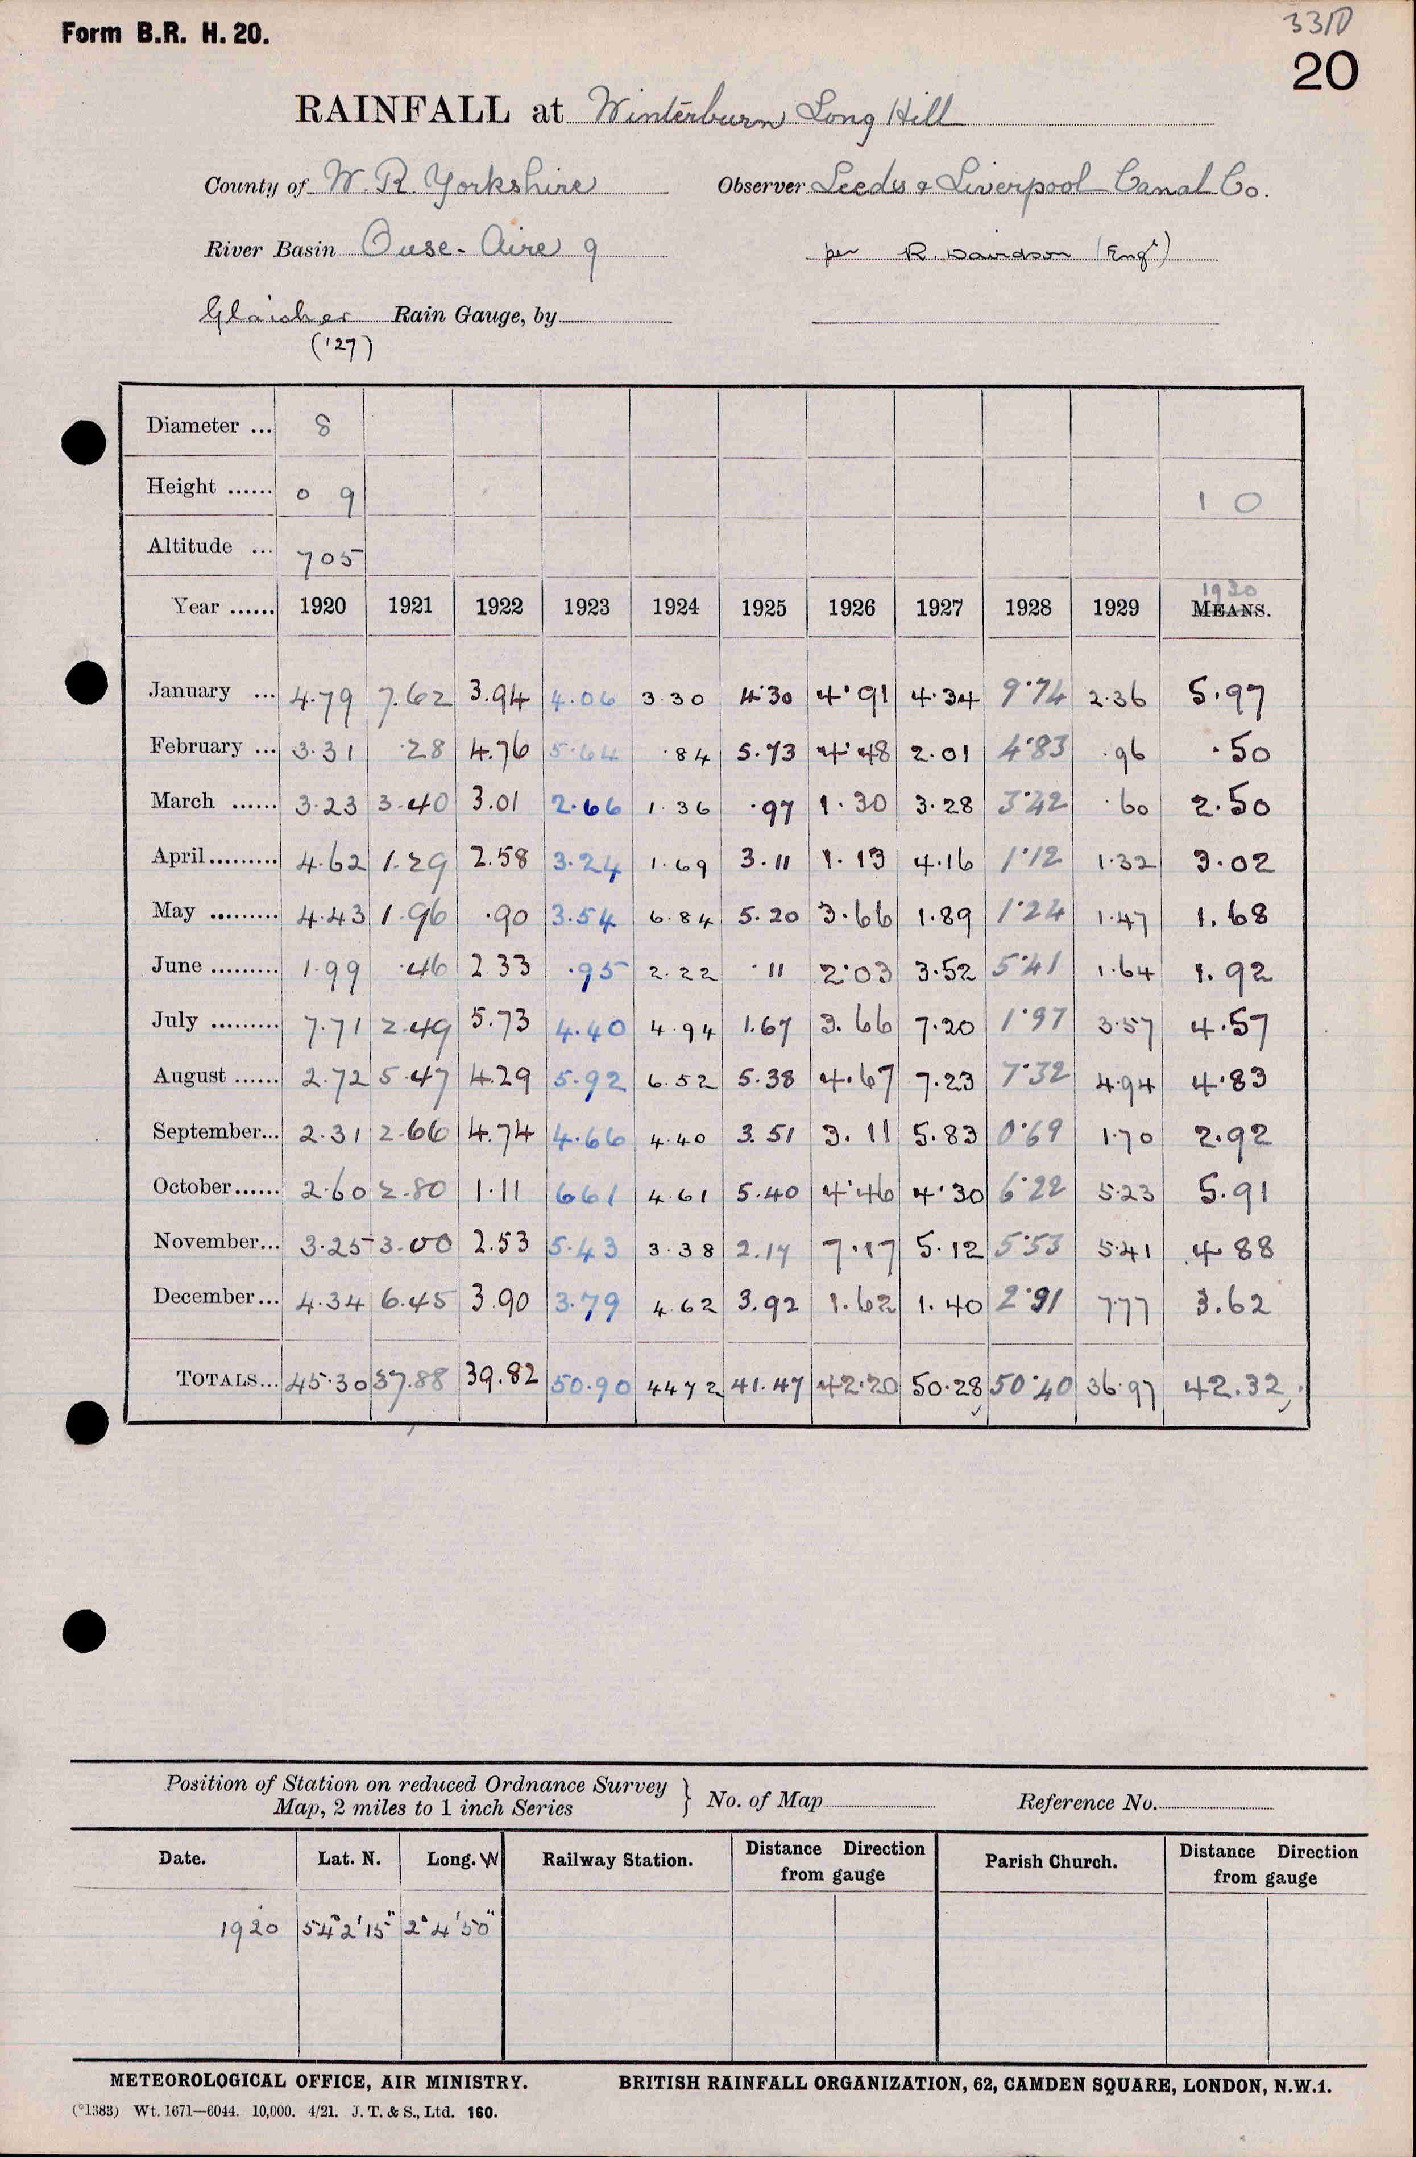 Form B.R. H. 20.
20
RAINFALL at Winterburn Long Hill
County of W. R. Yorkshire Observer Leeds & Liverpool Canal Co.
River Basin Ouse - Aire 9 per R. Davidson (Engr)
Glaisher Rain Gauge, by
('27)
Diameter ... 8
Height ...... 0 9 1 0
Altitude ... 705
1930
Year ...... 1920 1921 1922 1923 1924 1925 1926 1927 1928 1929 MEANS.
January ... 4.79 7.62 3.94 4.06 3.30 4.30 4.91 4.34 9.74 2.36 5.97
February ... 3.31 .28 4.76 5.64 .84 5.73 4.48 2.01 4.83 .96 .50
March ...... 3.23 3.40 3.01 2.66 1.36 .97 1.30 3.28 3.42 .60 2.50
April......... 4.62 1.29 2.58 3.24 1.69 3.11 1.13 4.16 1.12 1.32 3.02
May ......... 4.43 1.96 .90 3.54 6.84 5.20 3.66 1.89 1.24 1.47 1.68
June ......... 1.99 .46 2 33 .95 2.22 .11 2.03 3.52 5.41 1.64 1.92
July ......... 7.71 2.49 5.73 4.40 4.94 1.67 3.66 7.20 1.97 3.57 4.57
August ...... 2.72 5.47 4.29 5.92 6.52 5.38 4.67 7.23 7.32 4.94 4.83
September... 2.31 2.66 4.74 4.66 4.40 3.51 3.11 5.83 0.69 1.70 2.92
October...... 2.60 2.80 1.11 6 61 4.61 5.40 4.46 4.30 6.22 5.23 5.91
November... 3.25 3.00 2.53 5.43 3.38 2.14 7.17 5.12 5.53 5.41 4 88
December... 4.34 6.45 3.90 3.79 4.62 3.92 1.62 1.40 2.91 7.77 3.62
TOTALS... 45.30 37.88 39.82 50.90 44 72 41.47 42.20 50.28 50.40 36.97 42.32
Position of Station on reduced Ordnance Survey } No. of Map Reference No.
Map, 2 miles to 1 inch Series
Date. Lat. N. Long. W Railway Station. Distance Direction from gauge Parish Church. Distance Direction from gauge
1920 54° 2' 15" 2° 4' 50"
METEOROLOGICAL OFFICE, AIR MINISTRY. BRITISH RAINFALL ORGANIZATION, 62, CAMDEN SQUARE, LONDON, N.W.1.
(*1383) Wt. 1671—6044. 10,000. 4/21. J. T. & S., Ltd. 160.